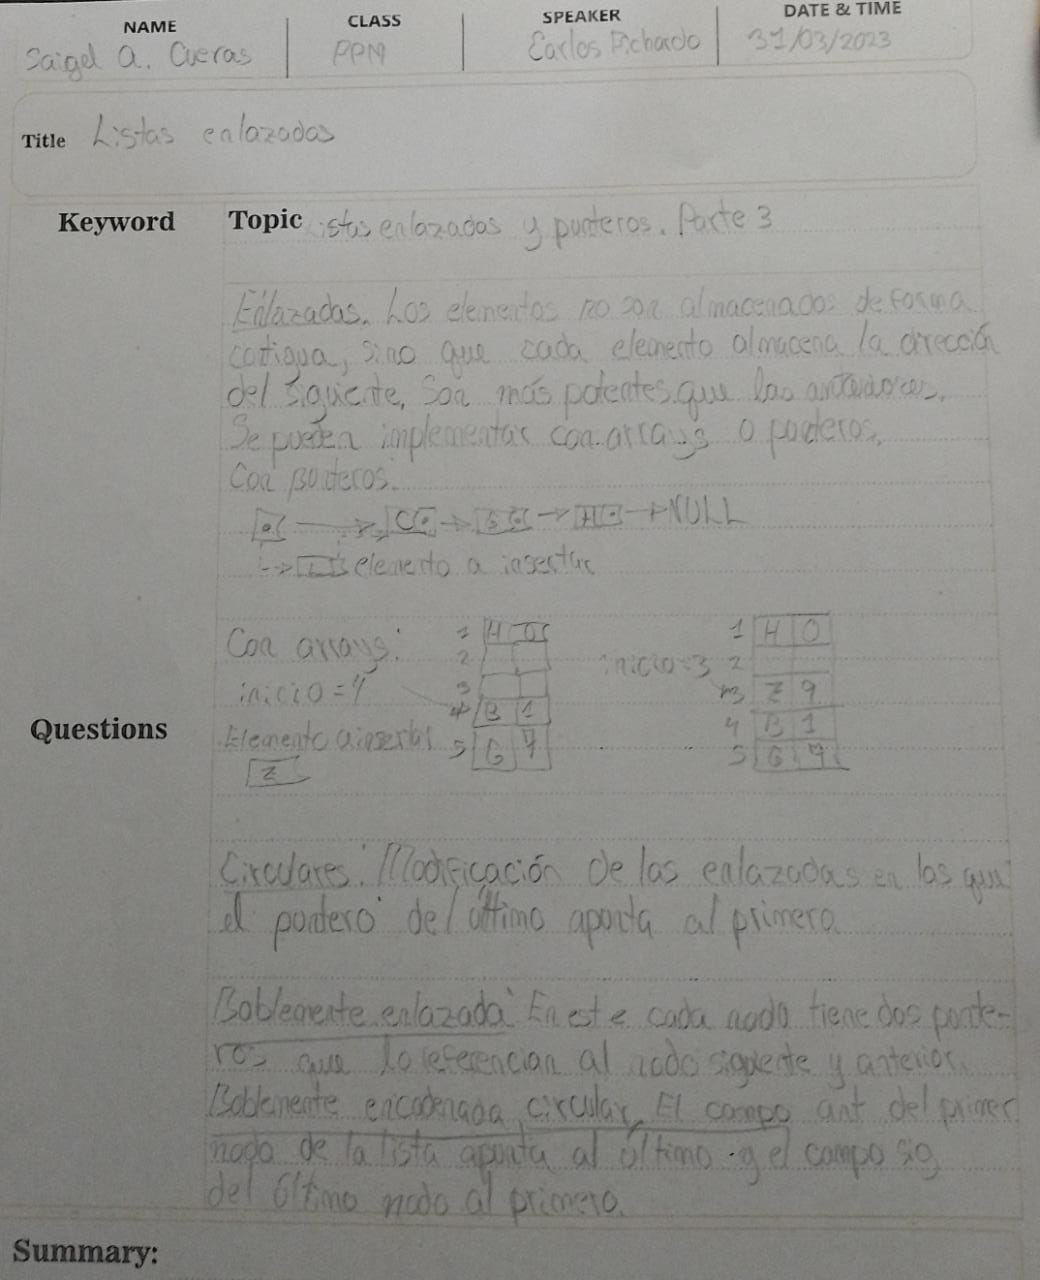 NAME CLASS SPEAKER DATE & TIME
Saigel A. Cueras PPM Carlos Pichardo 31/03/2023
Title Listas enlazadas
Keyword Topic Listas enlazadas y punteros. Parte 3
Enlazadas. Los elementos no son almacenados de forma
contigua, sino que cada elemento almacena la dirección
del siguiente, Son más potentes que las anteriores.
Se pueden implementar con arrays o punteros.
Con punteros:
C H NULL
elemento a insertar
Con arrays: 1 H 0 1 H 0
2 inicio=3 2
inicio=4 3 3 Z 9
4 B 1 4 B 1
Questions Elemento a insertar 5 G 7 5 G 7
Z
Circulares: Modificación de las enlazadas en las que
el puntero del último apunta al primero
Doblemente enlazada: En este cada nodo tiene dos punte-
ros que lo referencian al nodo siguiente y anterior.
Doblemente encadenada circular. El campo ant del primer
nodo de la lista apunta al último y el campo sig
del último nodo al primero.
Summary: